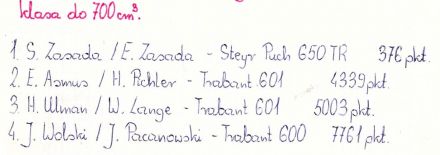 klasa do 700 cm³.
1. S. Zasada / E. Zasada - Steyr Puch 650 TR 376 pkt.
2. E. Asmus / H. Pichler - Trabant 601 4339 pkt.
3. H. Ulman / W. Lange - Trabant 601 5003 pkt.
4. J. Wolski / J. Pacanowski - Trabant 600 7761 pkt.